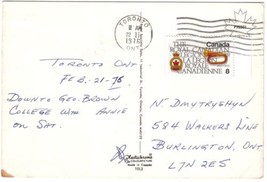 TORONTO
8 AM
1976
ONT
THE
ROYAL CANADIAN
LEGION
LA LEGION
ROYALE
CANADIENNE
Canada
8
TORONTO ONT
FEB-21-76
DOWN TO GEO. BROWN
COLLEGE WITH ANNIE
ON SAT.
N. DMYTRYSHYN
584 WALKERS LINE
BURLINGTON, ONT
L7N 2E5
Made in Canada